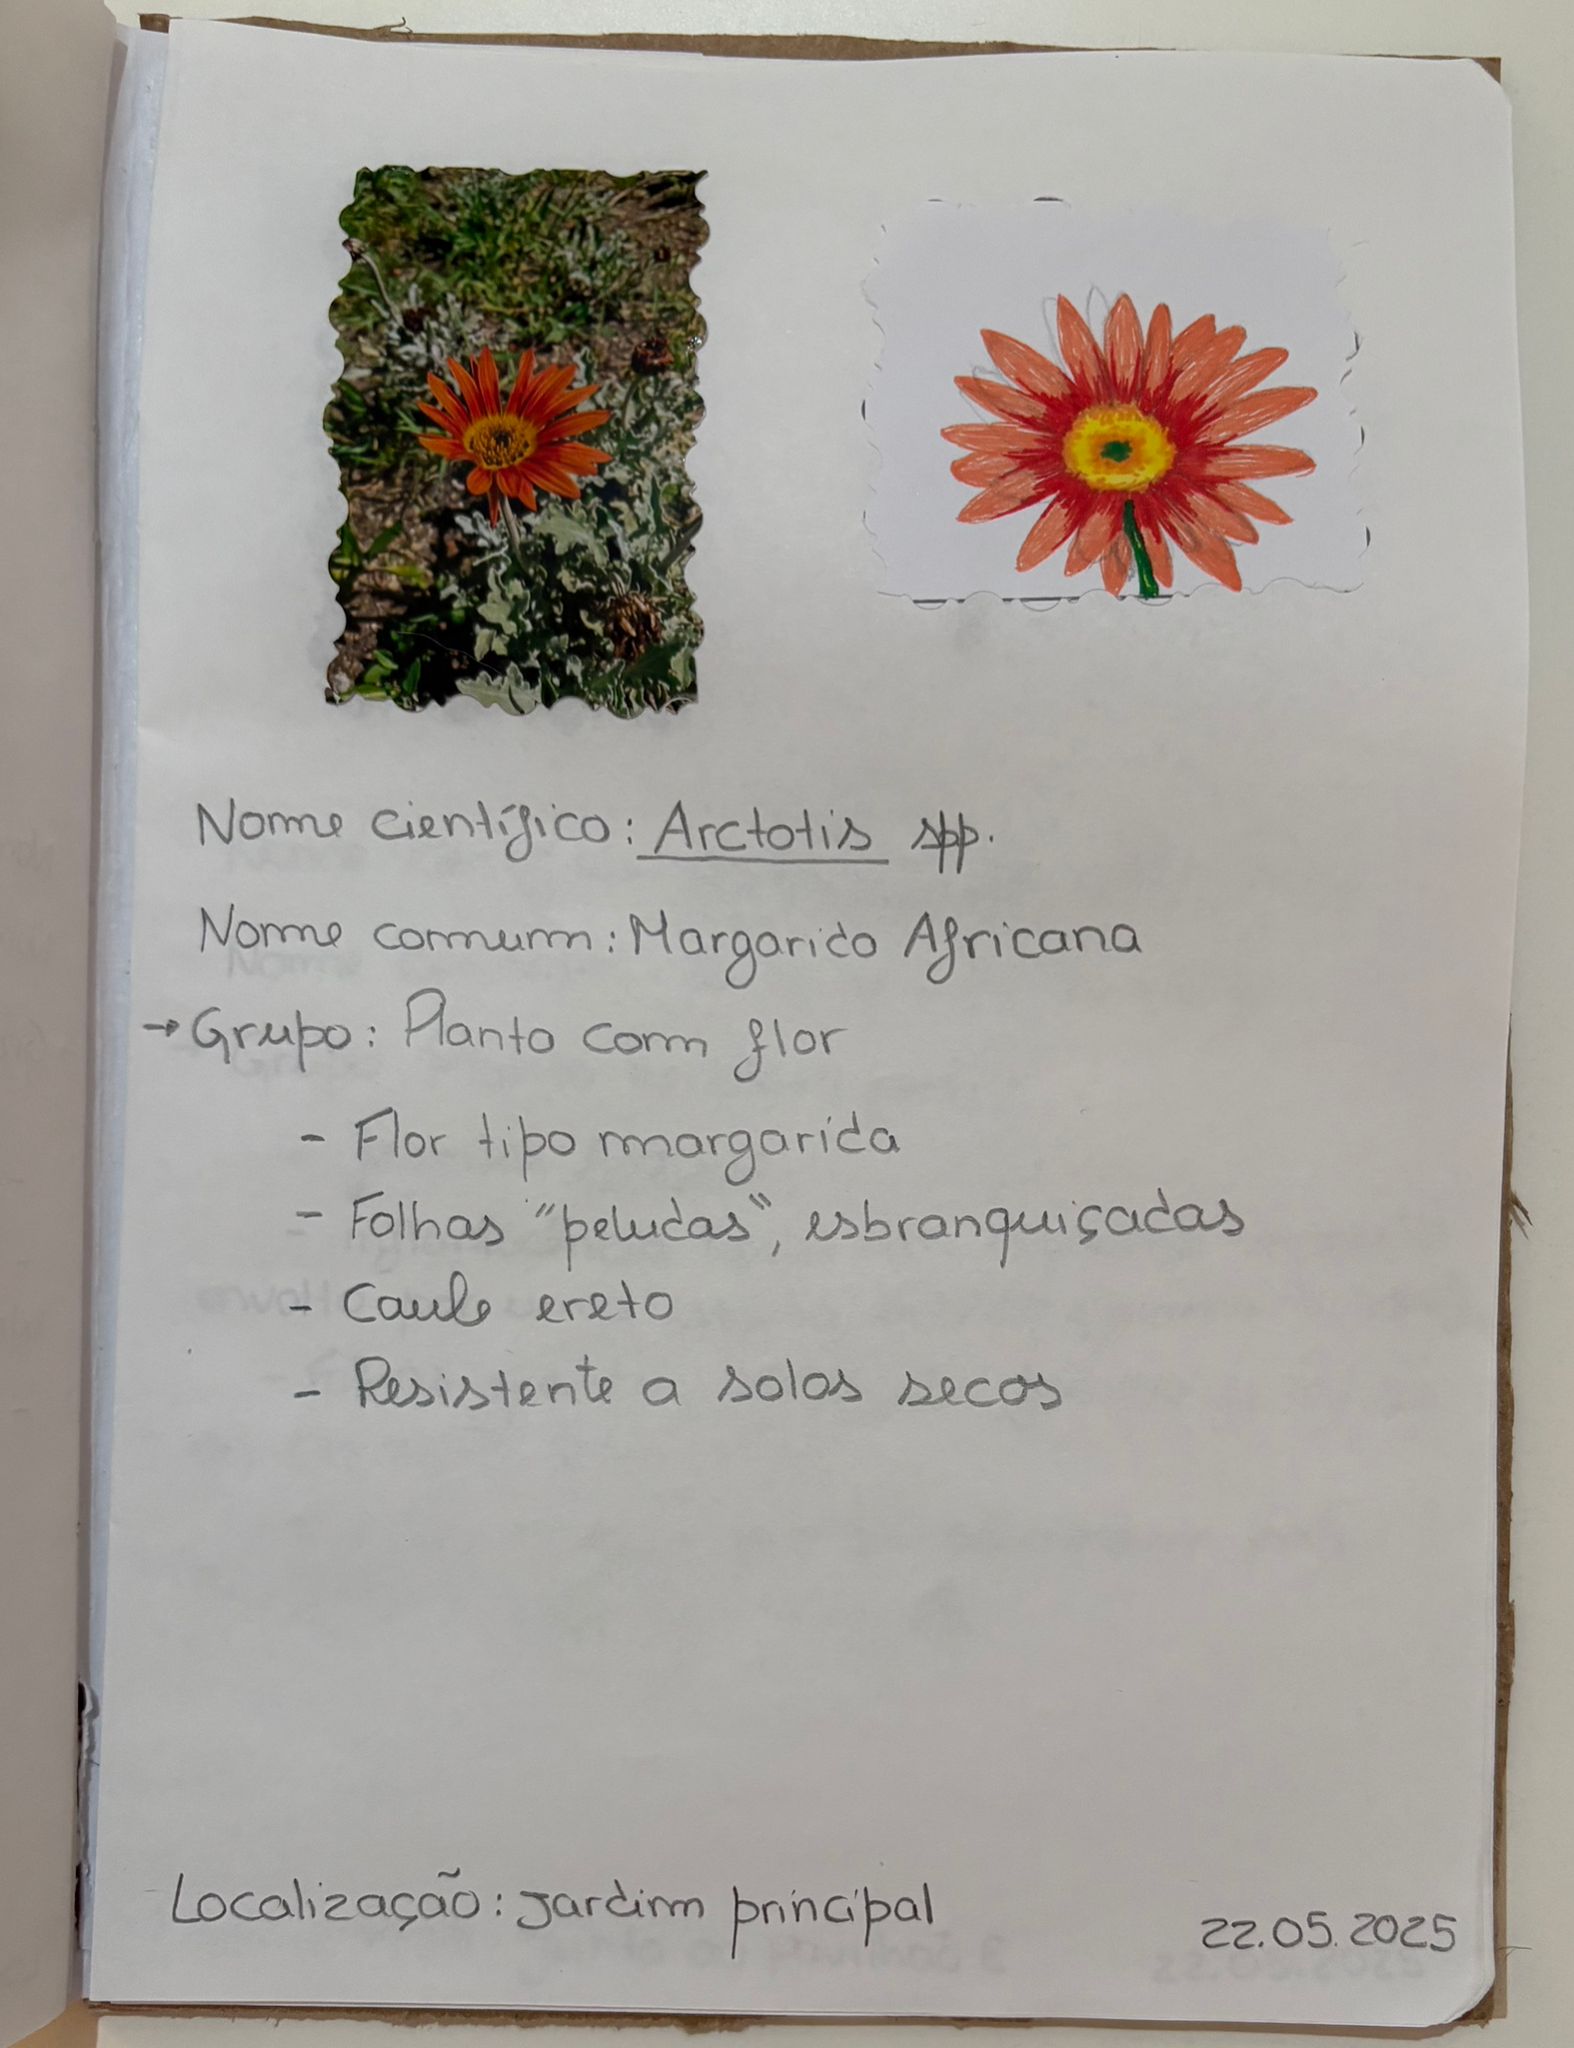 Nome científico: Arctotis spp.
Nome comum: Margarida Africana
→ Grupo: Planta com flor
- Flor tipo margarida
- Folhas "peludas", esbranquiçadas
- Caule ereto
- Resistente a solos secos
Localização: Jardim principal
22.05.2025